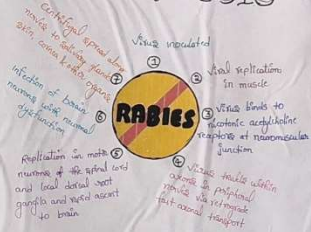 Virus inoculated
①
②
Viral replication
in muscle
③ Virus binds to
nicotonic acetylcholine
receptors at neuromuscular
junction
④
Virus travels within
axons in peripheral
nerves via retrograde
fast axonal transport
⑤
Replication in motor
neurons of the spinal cord
and local dorsal root
ganglia and rapid ascent
to brain
⑥
Infection of brain
neurons with neuronal
dysfunction
⑦
Centrifugal spread along
nerves to salivary glands
skin, cornea & other organs
RABIES